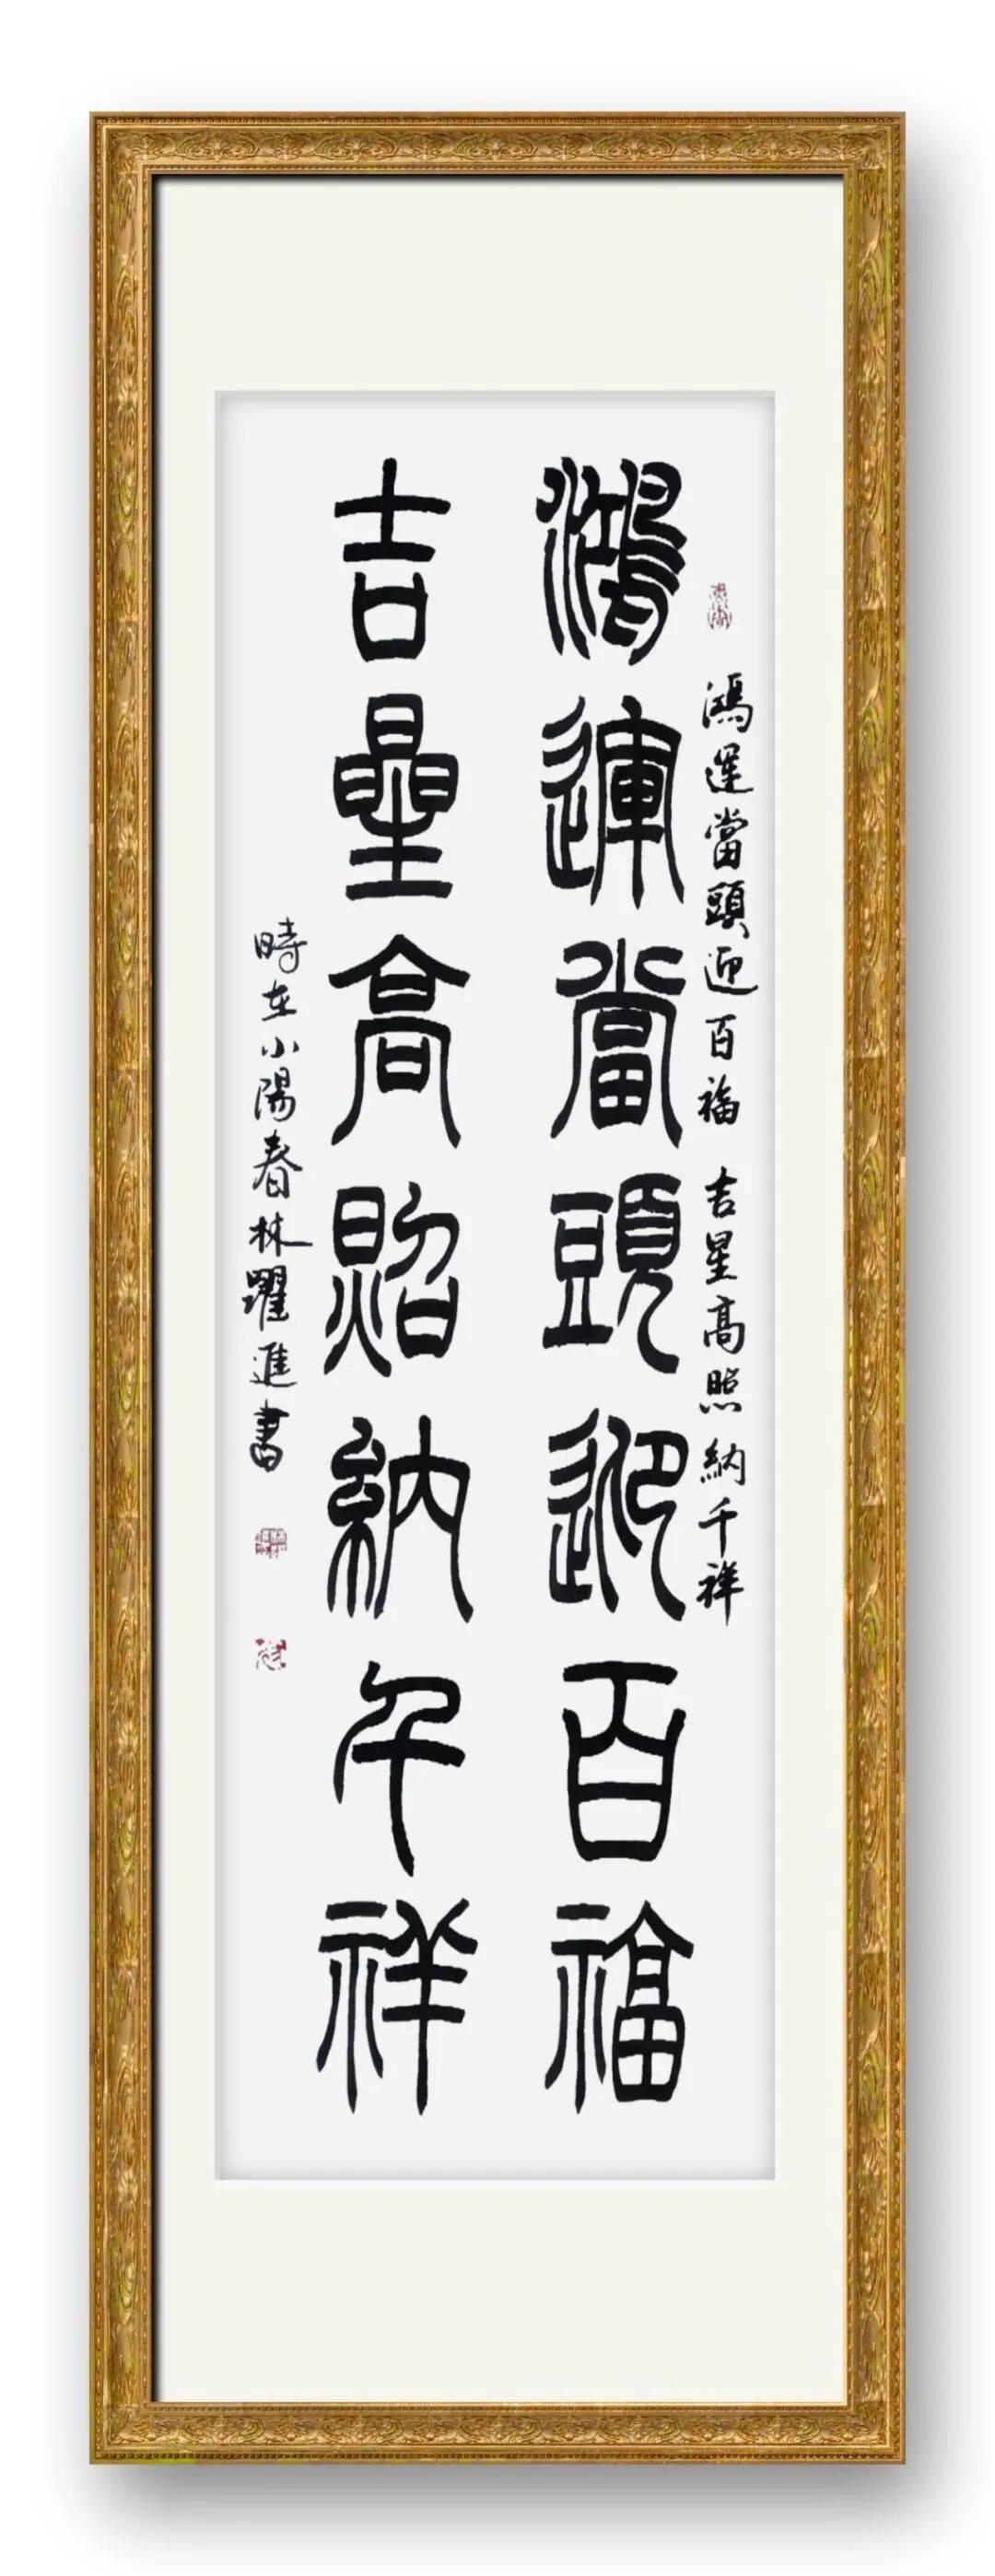 鴻運當頭迎百福 吉星高照納千祥
鴻運當頭迎百福
吉星高照納千祥
時在小陽春林躍進書